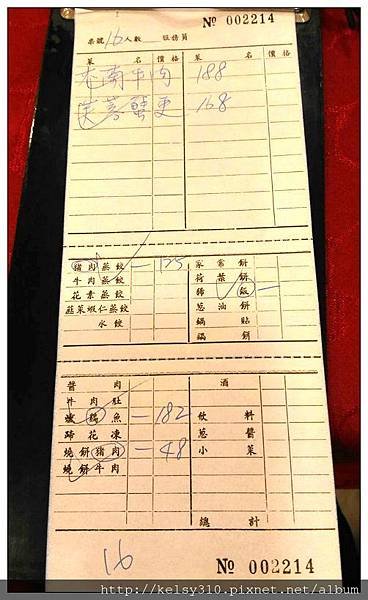 № 002214
桌號 16 人數 服務員
菜 名 價格 菜 名 價格
牛肉 188
芙蓉蟹 168
豬肉蒸餃 一 125 家常餅
牛肉蒸餃 荷葉餅
花素蒸餃 稀飯 一
韮菜蝦仁蒸餃 葱油餅
水餃 鍋貼
鍋餅
醬肉 酒
牛肉肚
燻鷄魚 一 182 飲料
蹄花凍 葱醬
燒餅豬肉 一 48 小菜
燒餅牛肉
總計
16 № 002214
http://kelsy310.pixnet.net/album